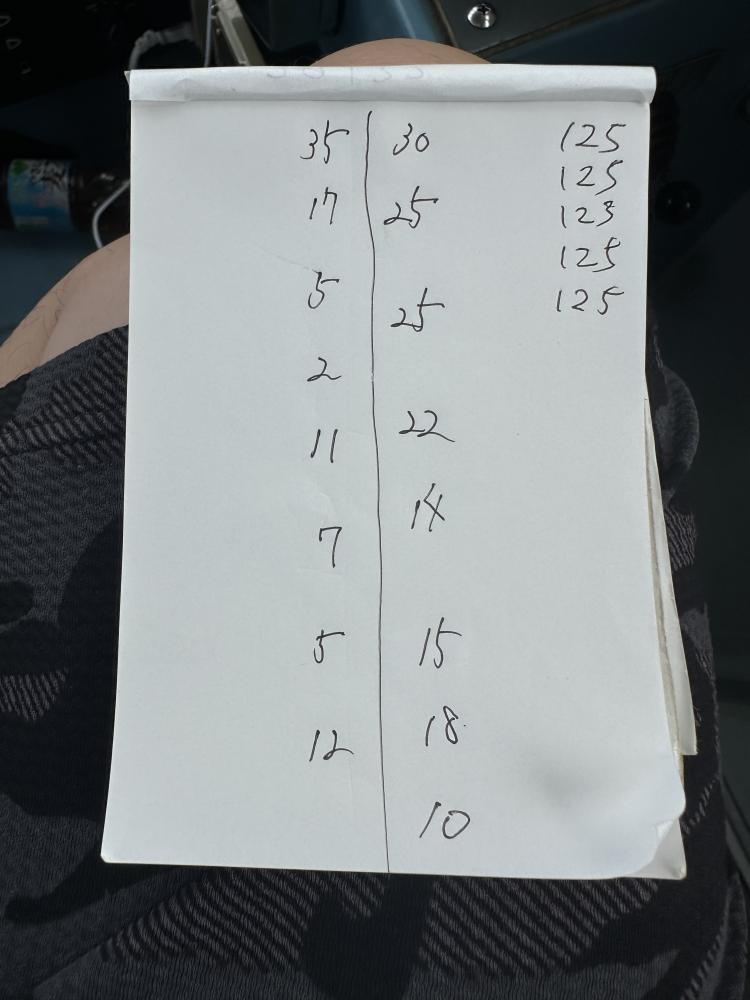 35 30 125
125
17 25 123
125
5 25 125
2
11 22
7 14
5 15
12 18
10